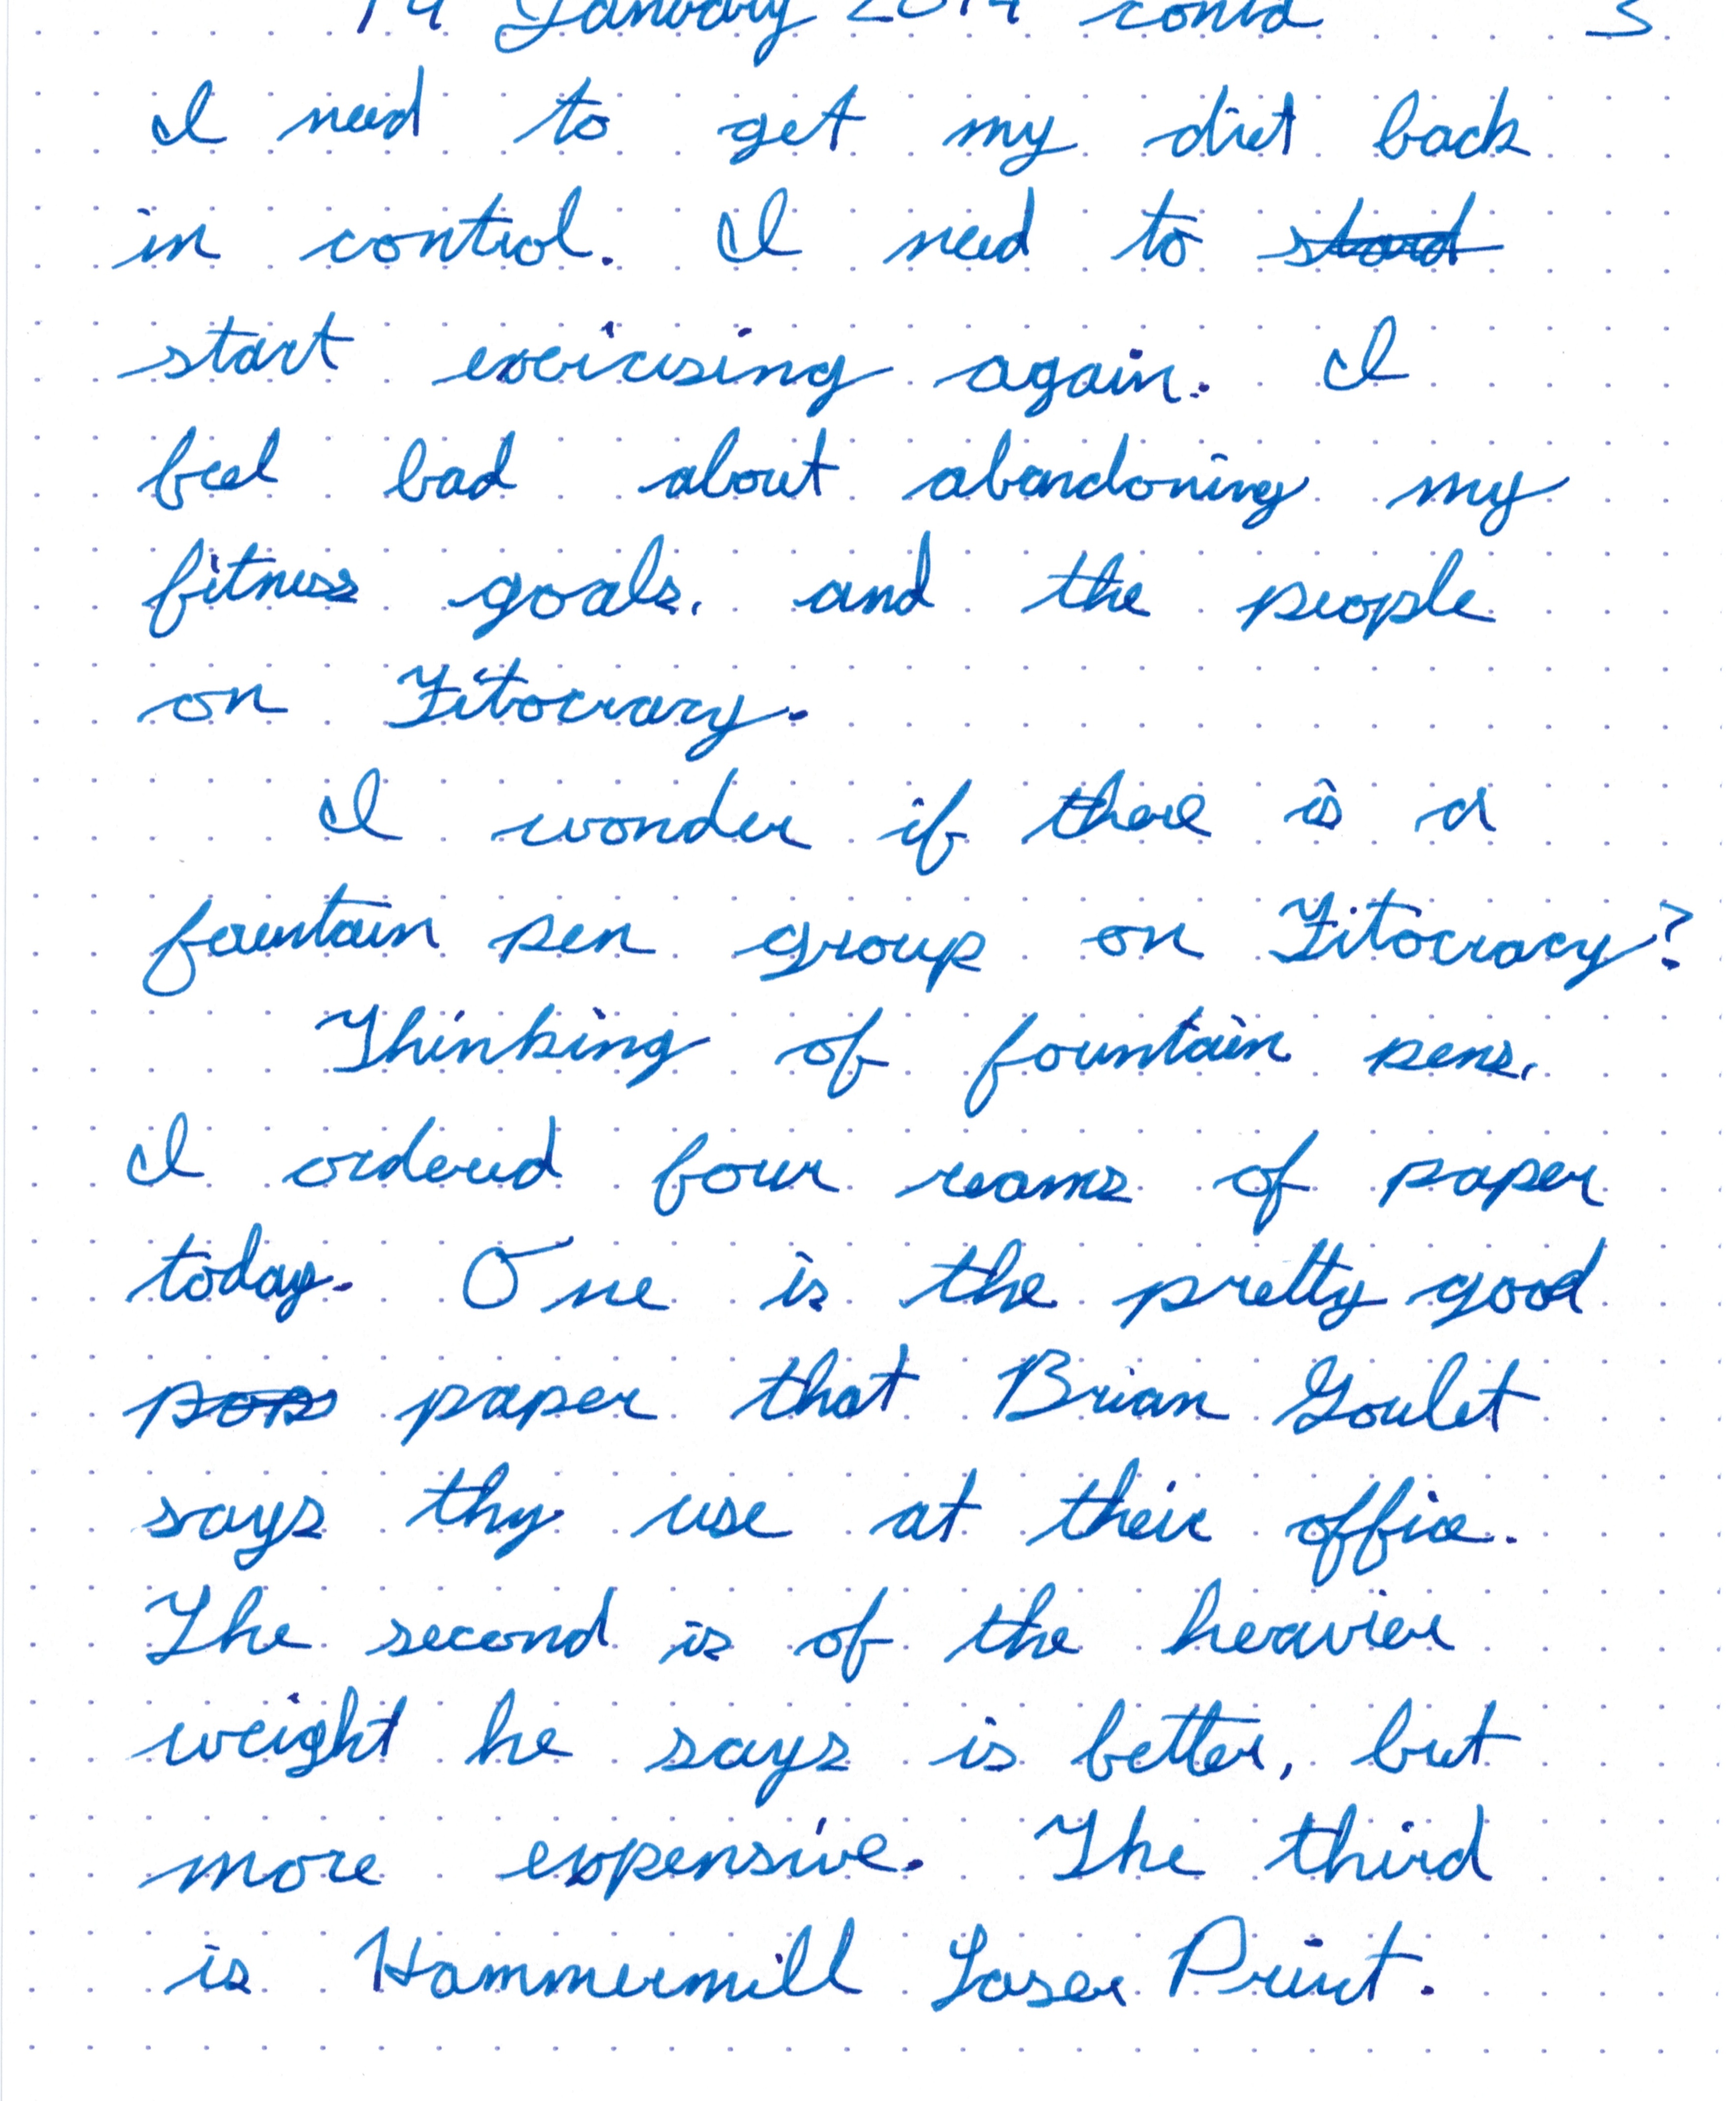 14 January 2014 contd 3
I need to get my diet back
in control. I need to stard
start exercising again. I
feel bad about abandoning my
fitness goals, and the people
on Fitocracy.
I wonder if there is a
fountain pen group on Fitocracy?
Thinking of fountain pens,
I ordered four reams of paper
today. One is the pretty good
pap paper that Brian Goulet
says thy use at their office.
The second is of the heavier
weight he says is better, but
more expensive. The third
is Hammermill Laser Print.